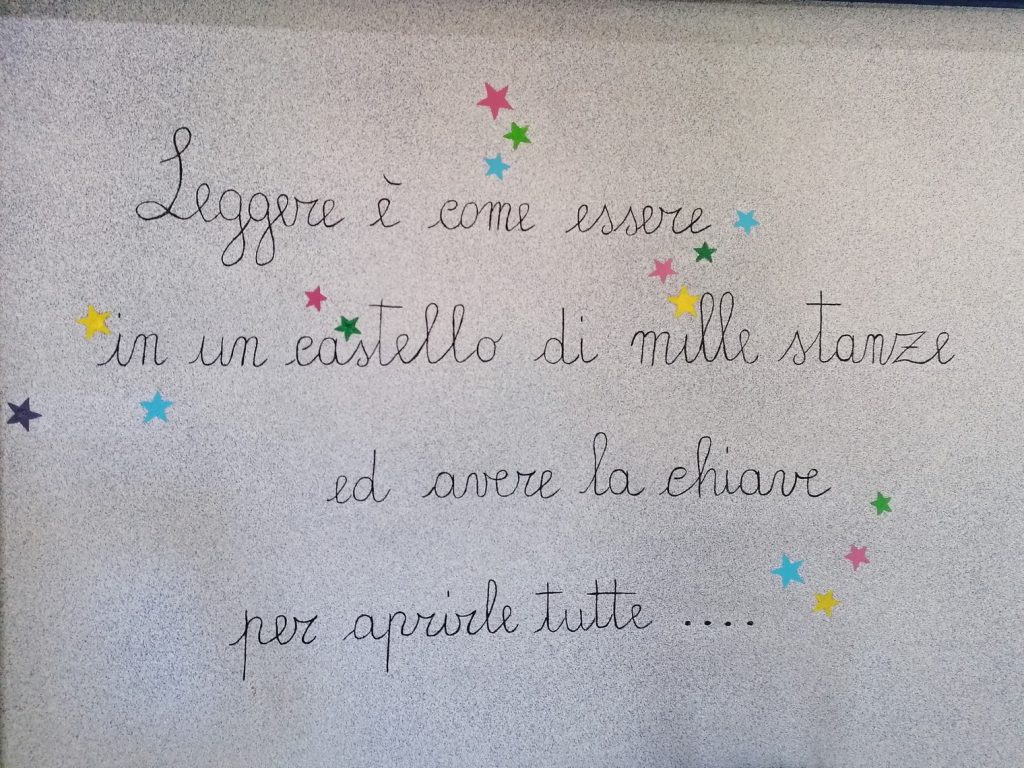 Leggere è come essere
in un castello di mille stanze
ed avere la chiave
per aprirle tutte ....